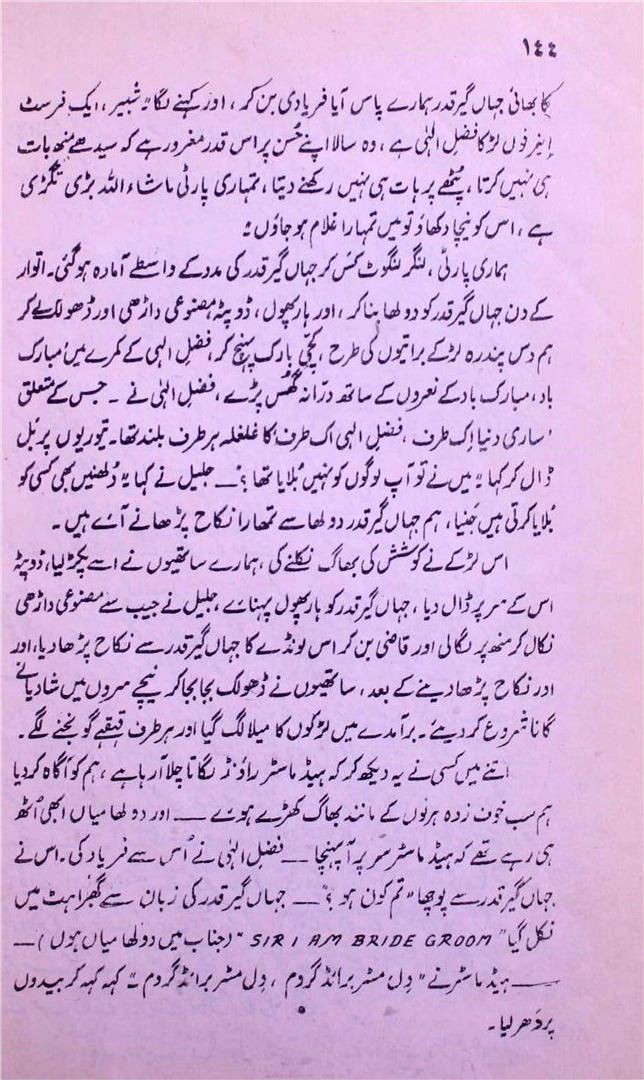 ۱۴۴
کا بھائی جہاں گیر قدر ہمارے پاس آیا فریادی بن کر، اور کہنے لگا "شبیر، ایک فرسٹ
ایئر فول لڑکا فضلِ الہٰی ہے، وہ سالا اپنے حُسن پر اس قدر مغرور ہے کہ سیدھے منھ بات
ہی نہیں کرتا، پُٹھے پر ہات ہی نہیں رکھنے دیتا، تمہاری پارٹی ماشاء اللہ بڑی تگڑی
ہے، اس کو نیچا دکھاؤ تو میں تمہارا غلام ہو جاؤں"
ہماری پارٹی، لنگر لنگوٹ کَس کر جہاں گیر قدر کی مدد کے واسطے آمادہ ہو گئی۔ اتوار
کے دن جہاں گیر قدر کو دولھا بنا کر، اور ہار پھول، ڈوپٹہ مصنوعی داڑھی اور ڈھولک لے کر
ہم دس پندرہ لڑکے براتیوں کی طرح، کچّی بارک پہنچ کر، فضلِ الہی کے کمرے میں "مبارک
باد، مبارک باد کے نعروں کے ساتھ درّانہ گھُس پڑے، فضل الہٰی نے ۔ جس کے متعلق
'ساری دنیا اِک طرف، فضل الہی اک طرف' کا غلغلہ ہر طرف بلند تھا۔ تیوریوں پر بَل
ڈال کر کہا "میں نے تو آپ لوگوں کو نہیں بُلایا تھا؟" ــــ جلیل نے کہا "دُلھنیں بھی کسی کو
بُلایا کرتی ہیں جَنیا، ہم جہاں گیر قدر دولھا سے تمھارا نکاح پڑھانے آئے ہیں۔
اس لڑکے نے کوشش کی بھاگ نکلنے کی، ہمارے ساتھیوں نے اسے پکڑ لیا، ڈوپٹہ
اس کے سر پر ڈال دیا، جہاں گیر قدر کو ہار پھول پہنائے، جلیل نے جیب سے مصنوعی داڑھی
نکال کر منھ پر لگالی اور قاضی بن کر اس لونڈے کا جہاں گیر قدر سے نکاح پڑھا دیا، اور
اور نکاح پڑھا دینے کے بعد، ساتھیوں نے ڈھولک بجا بجا کر نیچے سروں میں شادیانے
گانا شروع کر دیئے۔ برآمدے میں لڑکوں کا میلا لگ گیا اور ہر طرف قہقہے گونجنے لگے۔
اتنے میں کسی نے یہ دیکھ کر کہ ہیڈ ماسٹر راؤنڈ لگاتا چلا آرہا ہے، ہم کو آگاہ کر دیا
ہم سب خوف زدہ ہرنوں کے مانند بھاگ کھڑے ہوئے ــــ اور دولھا میاں ابھی اُٹھ
ہی رہے تھے کہ ہیڈ ماسٹر سر پر آ پہنچا ــــ فضل الہٰی نے اُس سے فریاد کی۔ اس نے
جہاں گیر قدر سے پوچھا "تم کون ہو؟" ــــ جہاں گیر قدر کی زبان سے گھبراہٹ میں
نکل گیا "SIR I AM BRIDE GROOM" (جناب میں دولھا میاں ہوں) ــــ
ــــ ہیڈ ماسٹر نے "دِل مسٹر برائڈ گردم، دِل مسٹر برائڈ گردم" کہہ کہہ کر بیدوں
پر دَھر لیا۔